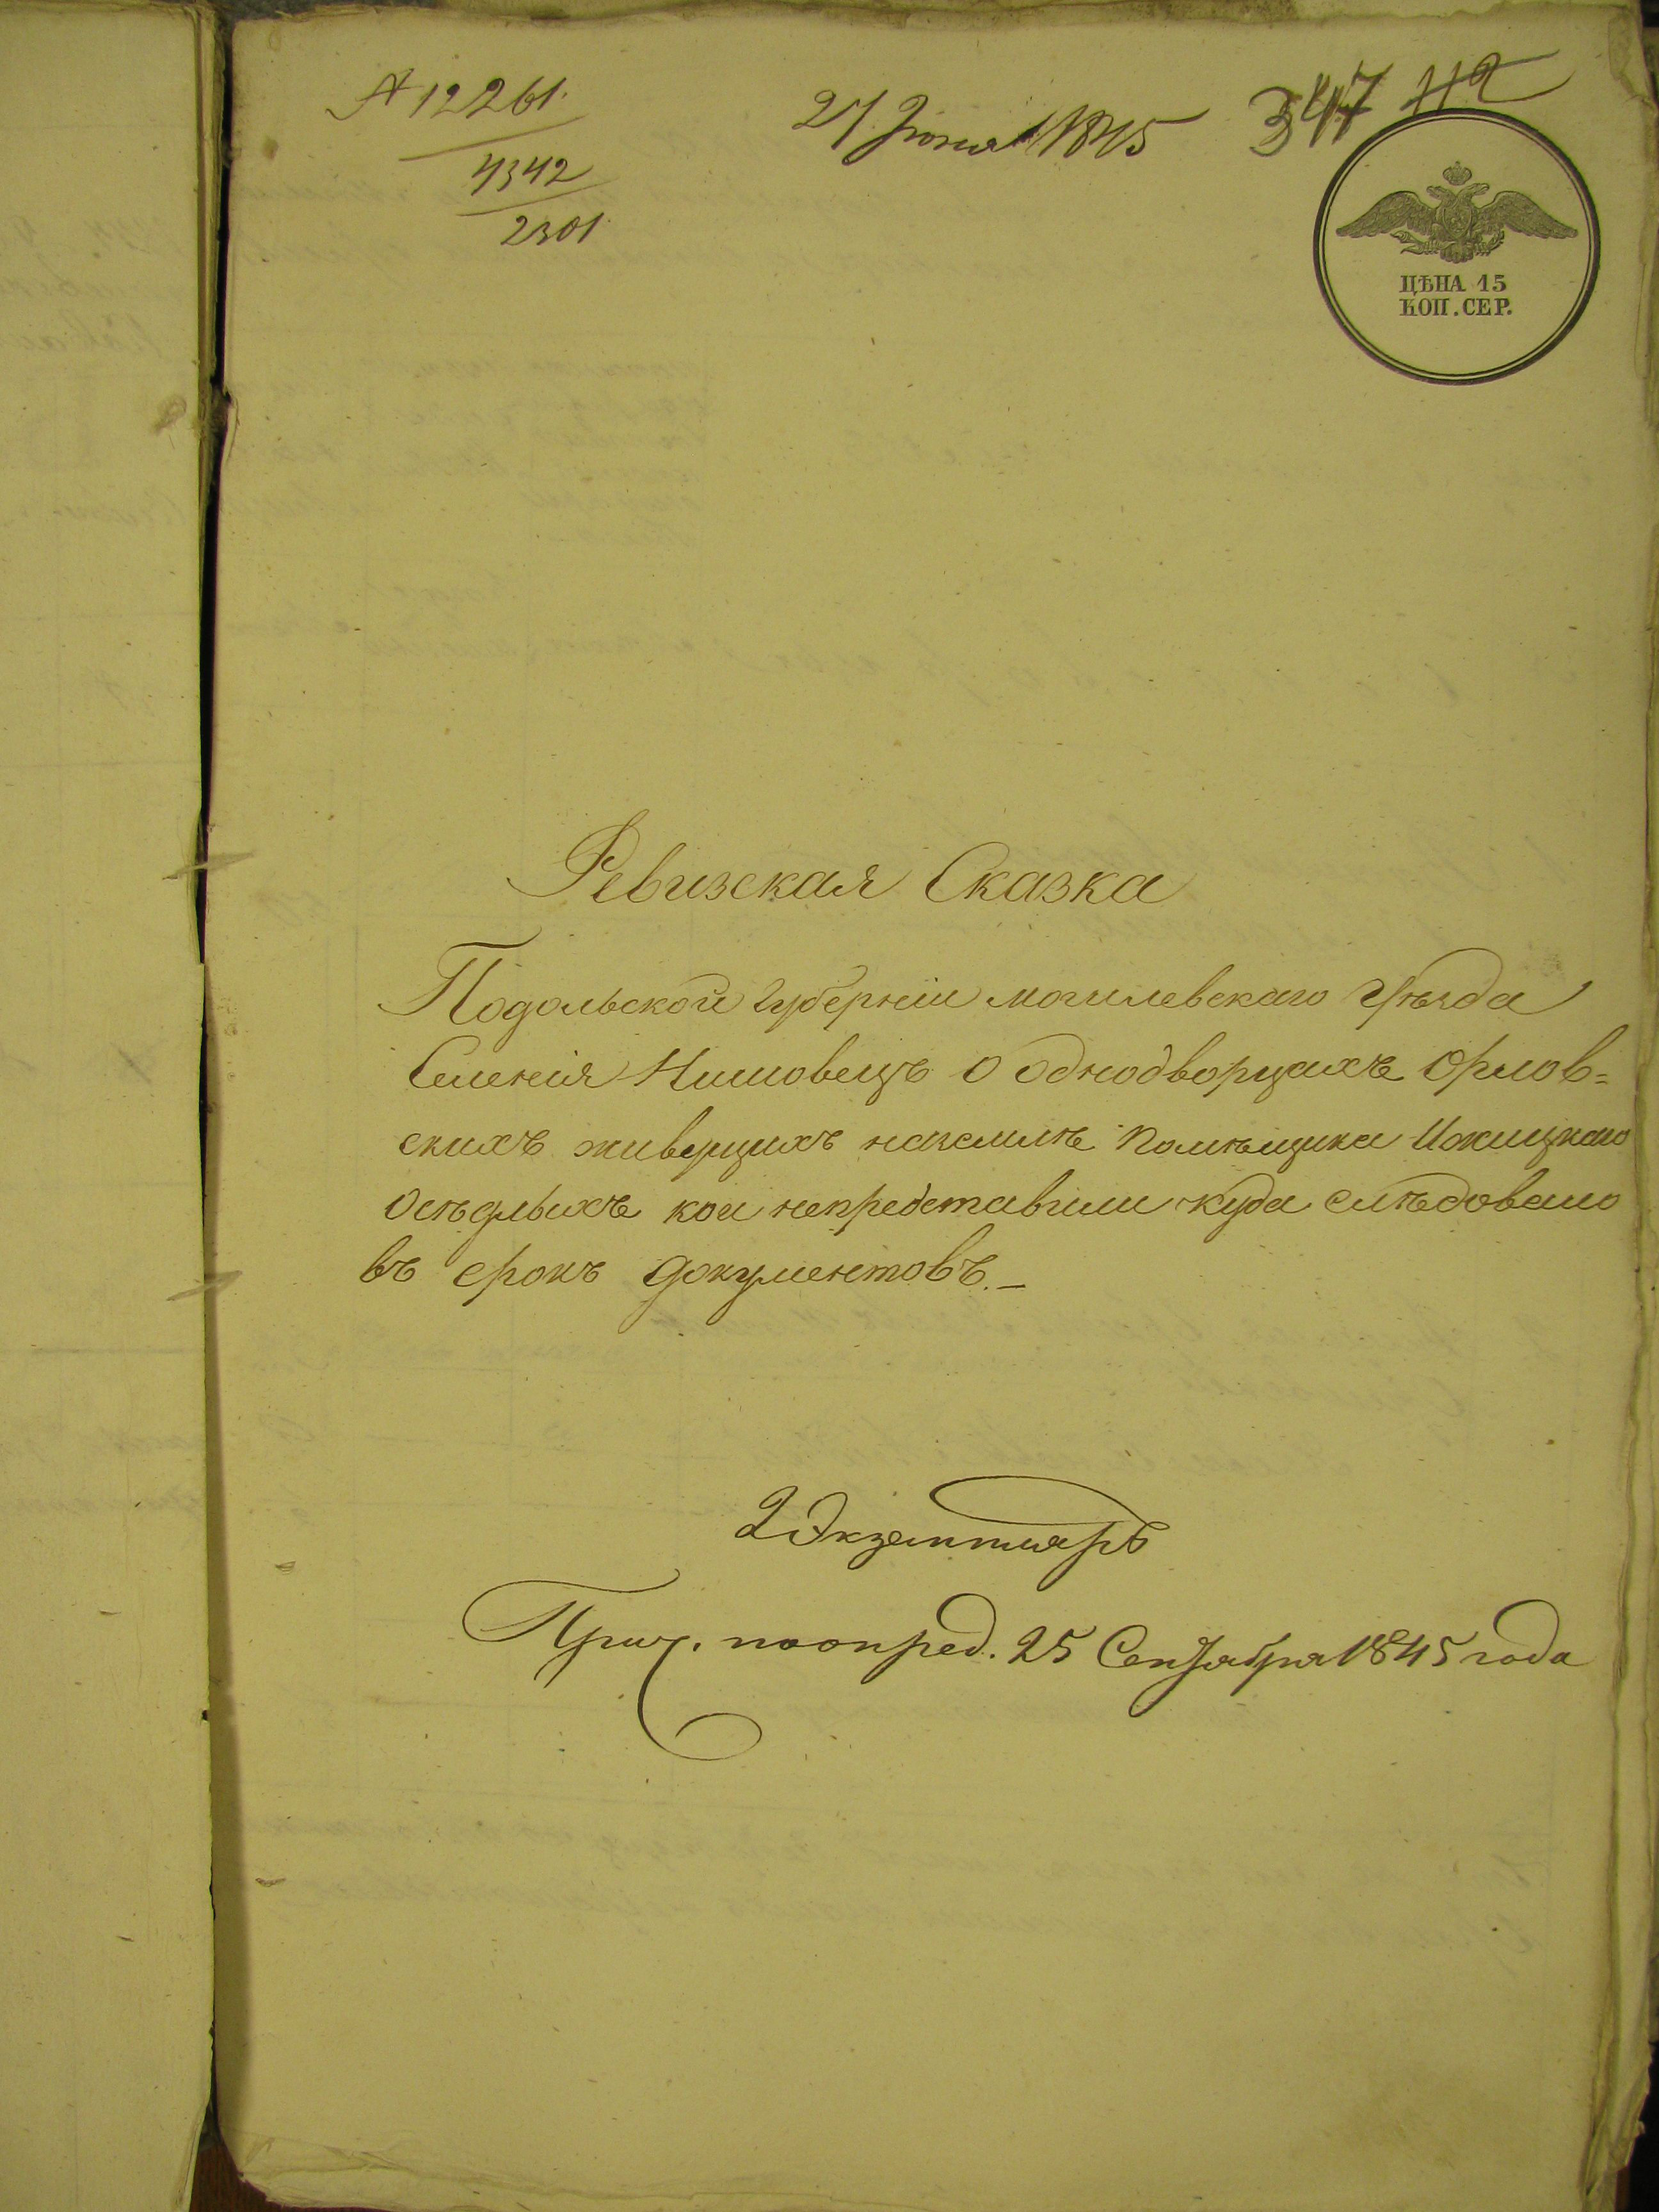 № 12261.
4342
2301.
27 Июня 1845
347 112
ЦѢНА 15
КОП. СЕР.
Ревизская Сказка
Подольской Губерніи могилевскаго Уѣзда
Селенія Нишовецъ О Однодворцахъ Орлов=
скихъ живущихъ наземлѣ помѣщика
Осѣдлыхъ кои непредставили куда слѣдовало
въ срокъ документовъ.–
2 Экземпляръ
Прич. поопред. 25 Сентября 1845 года